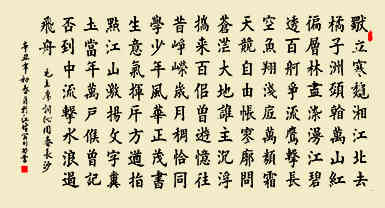 獨立寒秋湘江北去
橘子洲頭看萬山紅
徧層林盡染漫江碧
透百舸爭流鷹擊長
空魚翔淺底萬類霜
天競自由悵寥廓問
蒼茫大地誰主沉浮
攜來百侶曾遊憶往
昔崢嶸歲月稠恰同
學少年風華正茂書
生意氣揮斥方遒指
點江山激揚文字糞
土當年萬戶侯曾記
否到中流擊水浪遏
飛舟 毛主席詞沁園春長沙
辛丑年初春月於